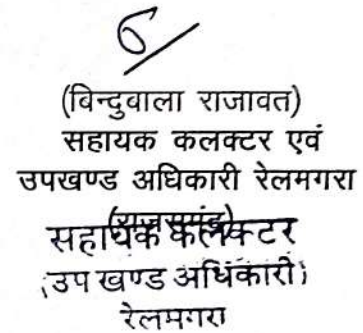 (बिन्दुबाला राजावत)
सहायक कलक्टर एवं
उपखण्ड अधिकारी रेलमगरा
(राजसमंद)
सहायक कलक्टर
(उप खण्ड अधिकारी)
रेलमगरा